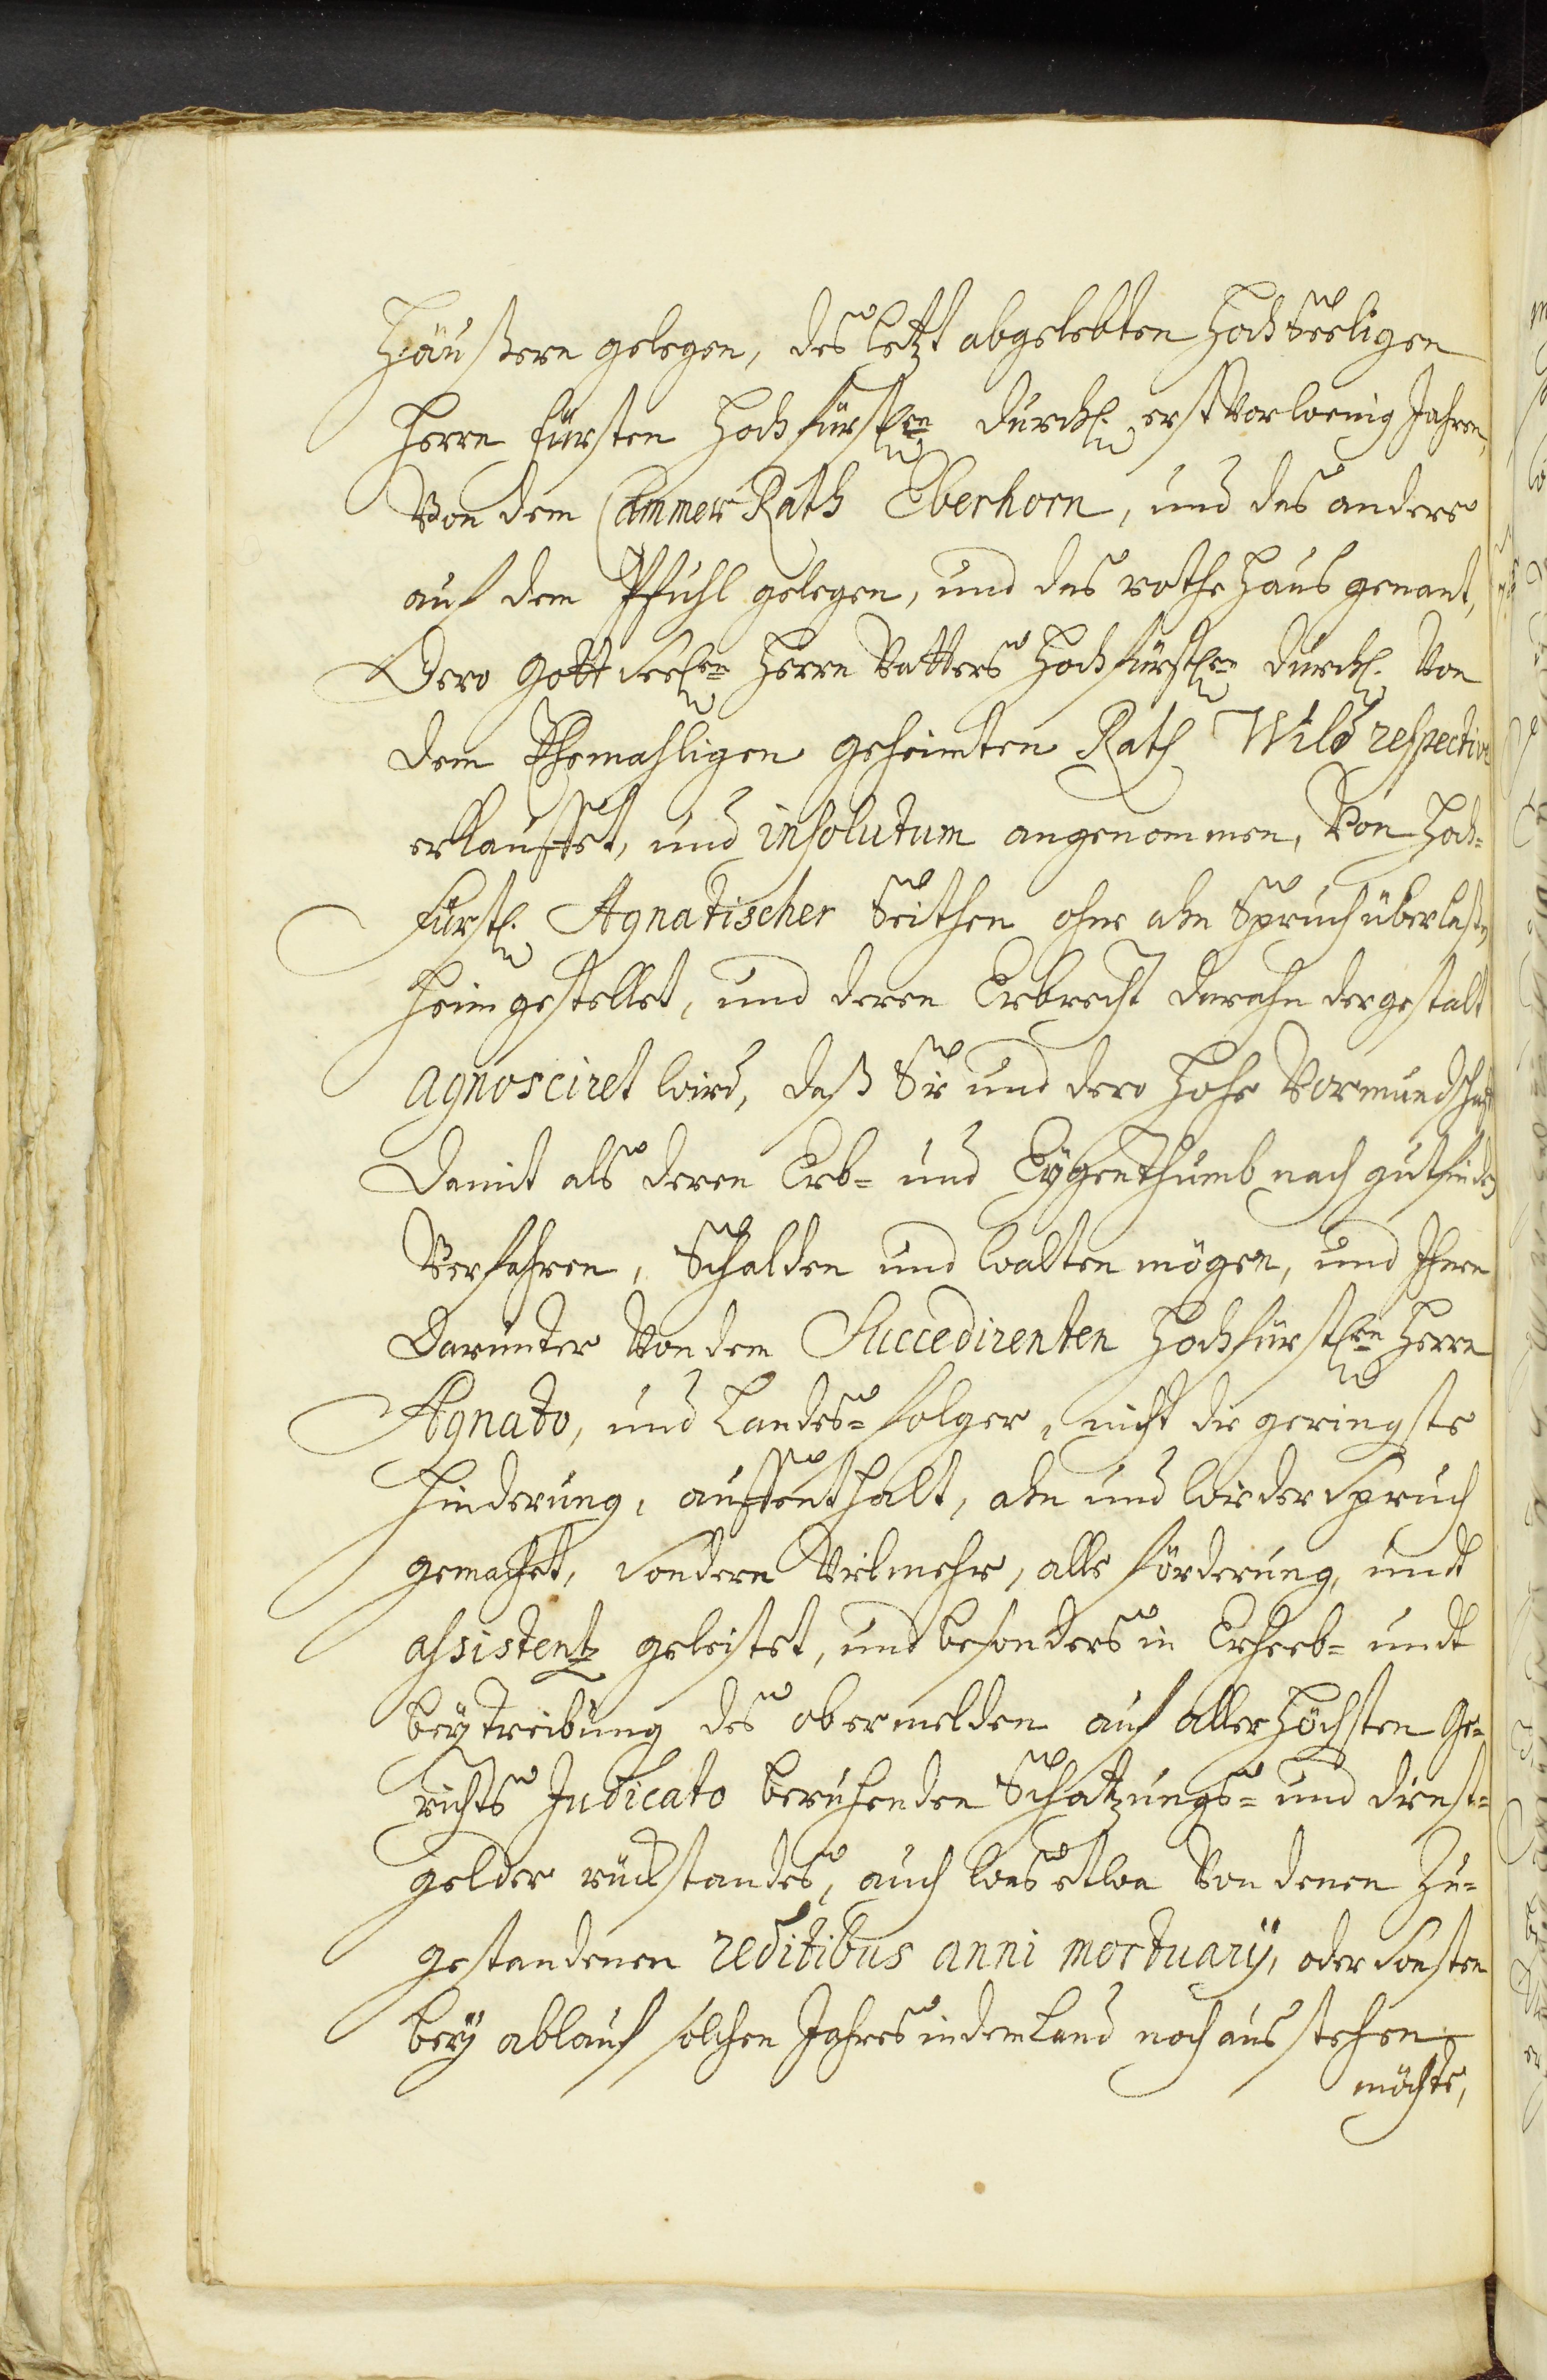 Häußern gelegen, des letzt abgelebten HochSeeligen
Herrn Fürsten Hochfürstlen Durchl. erst vor wenig Jahren,
Von dem Cammer Rath Eberhorn, und das andere
auf dem Pfuhl gelegen, und das rothe Haus genant,
Dero Gott Seelen Herrn Vatters Hochfürstlen Durchl. Von
dem Ehemahligen geheimten Rath Wild respective
erkauffet, und insolutum angenommen, Von Hoch=
Fürstl. Agnatischer Seithen ohne ahn Spruch überlaßen,
heimgestellet, und deren Erbrecht darahn dergestalt
agnosciret wird, daß Sie und dero Hohe Vormundschafft
damit als deren Erb= und Eÿgenthumb nach gutfinden
Verfahren, Schalden und walten mögen, und Ihnen
darunter Von dem Succedirenten Hochfürstlen Herrn
Agnato, und Landes=folger, nicht die geringste
Hinderung, auffenthalt, ahn und wieder Spruch
gemachet, sondern Vielmehr, alle förderung, undt
assistentz geleistet, und besonders in Erheeb= undt
beÿtreibung des obermelden auf allerhöchsten Ge=
richts Judicato beruhenden Schatzungs= und dienst=
gelder rückstandes, auch was etwa Von denen Zu=
gestandenen reditibus anni mortuarÿ, oder Sonsten
beÿ ablauf solchen Jahres in dem Land noch ausstehen
möchte,